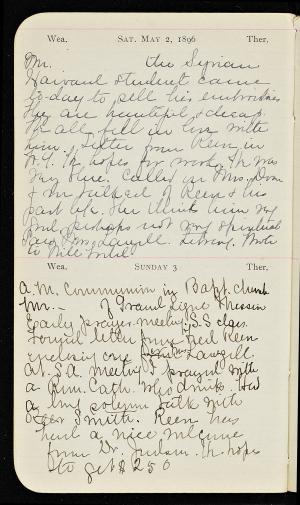 Wea. SAT. MAY 2, 1896 Ther.
Mr. the Syrian
Harvard student came
to-day to sell his embroideries
They are beautiful & cheap.
We all fell in love with
him. Letter from Keen in
N.Y. He hopes for work. He was
very blue. Called on Mrs. Dow
& we talked of Keen & his
past life. She thinks him very
good, perhaps not very spiritual
Saw Mrs. Laugell. Library. Wrote
to
Wea. SUNDAY 3 Ther.
A.M. Communion in Bapt. church
Mr. - of Grand Ligne Mission
Early prayer meeting. S.S class.
Found letter from Fred Keen
Laugell.
At S.A. meeting I prayed with
a Rom. Cath. who drank. Had
a long solemn talk with
Smith. Keen has
had a nice welcome
from Dr. Judson. He hopes
to get $250